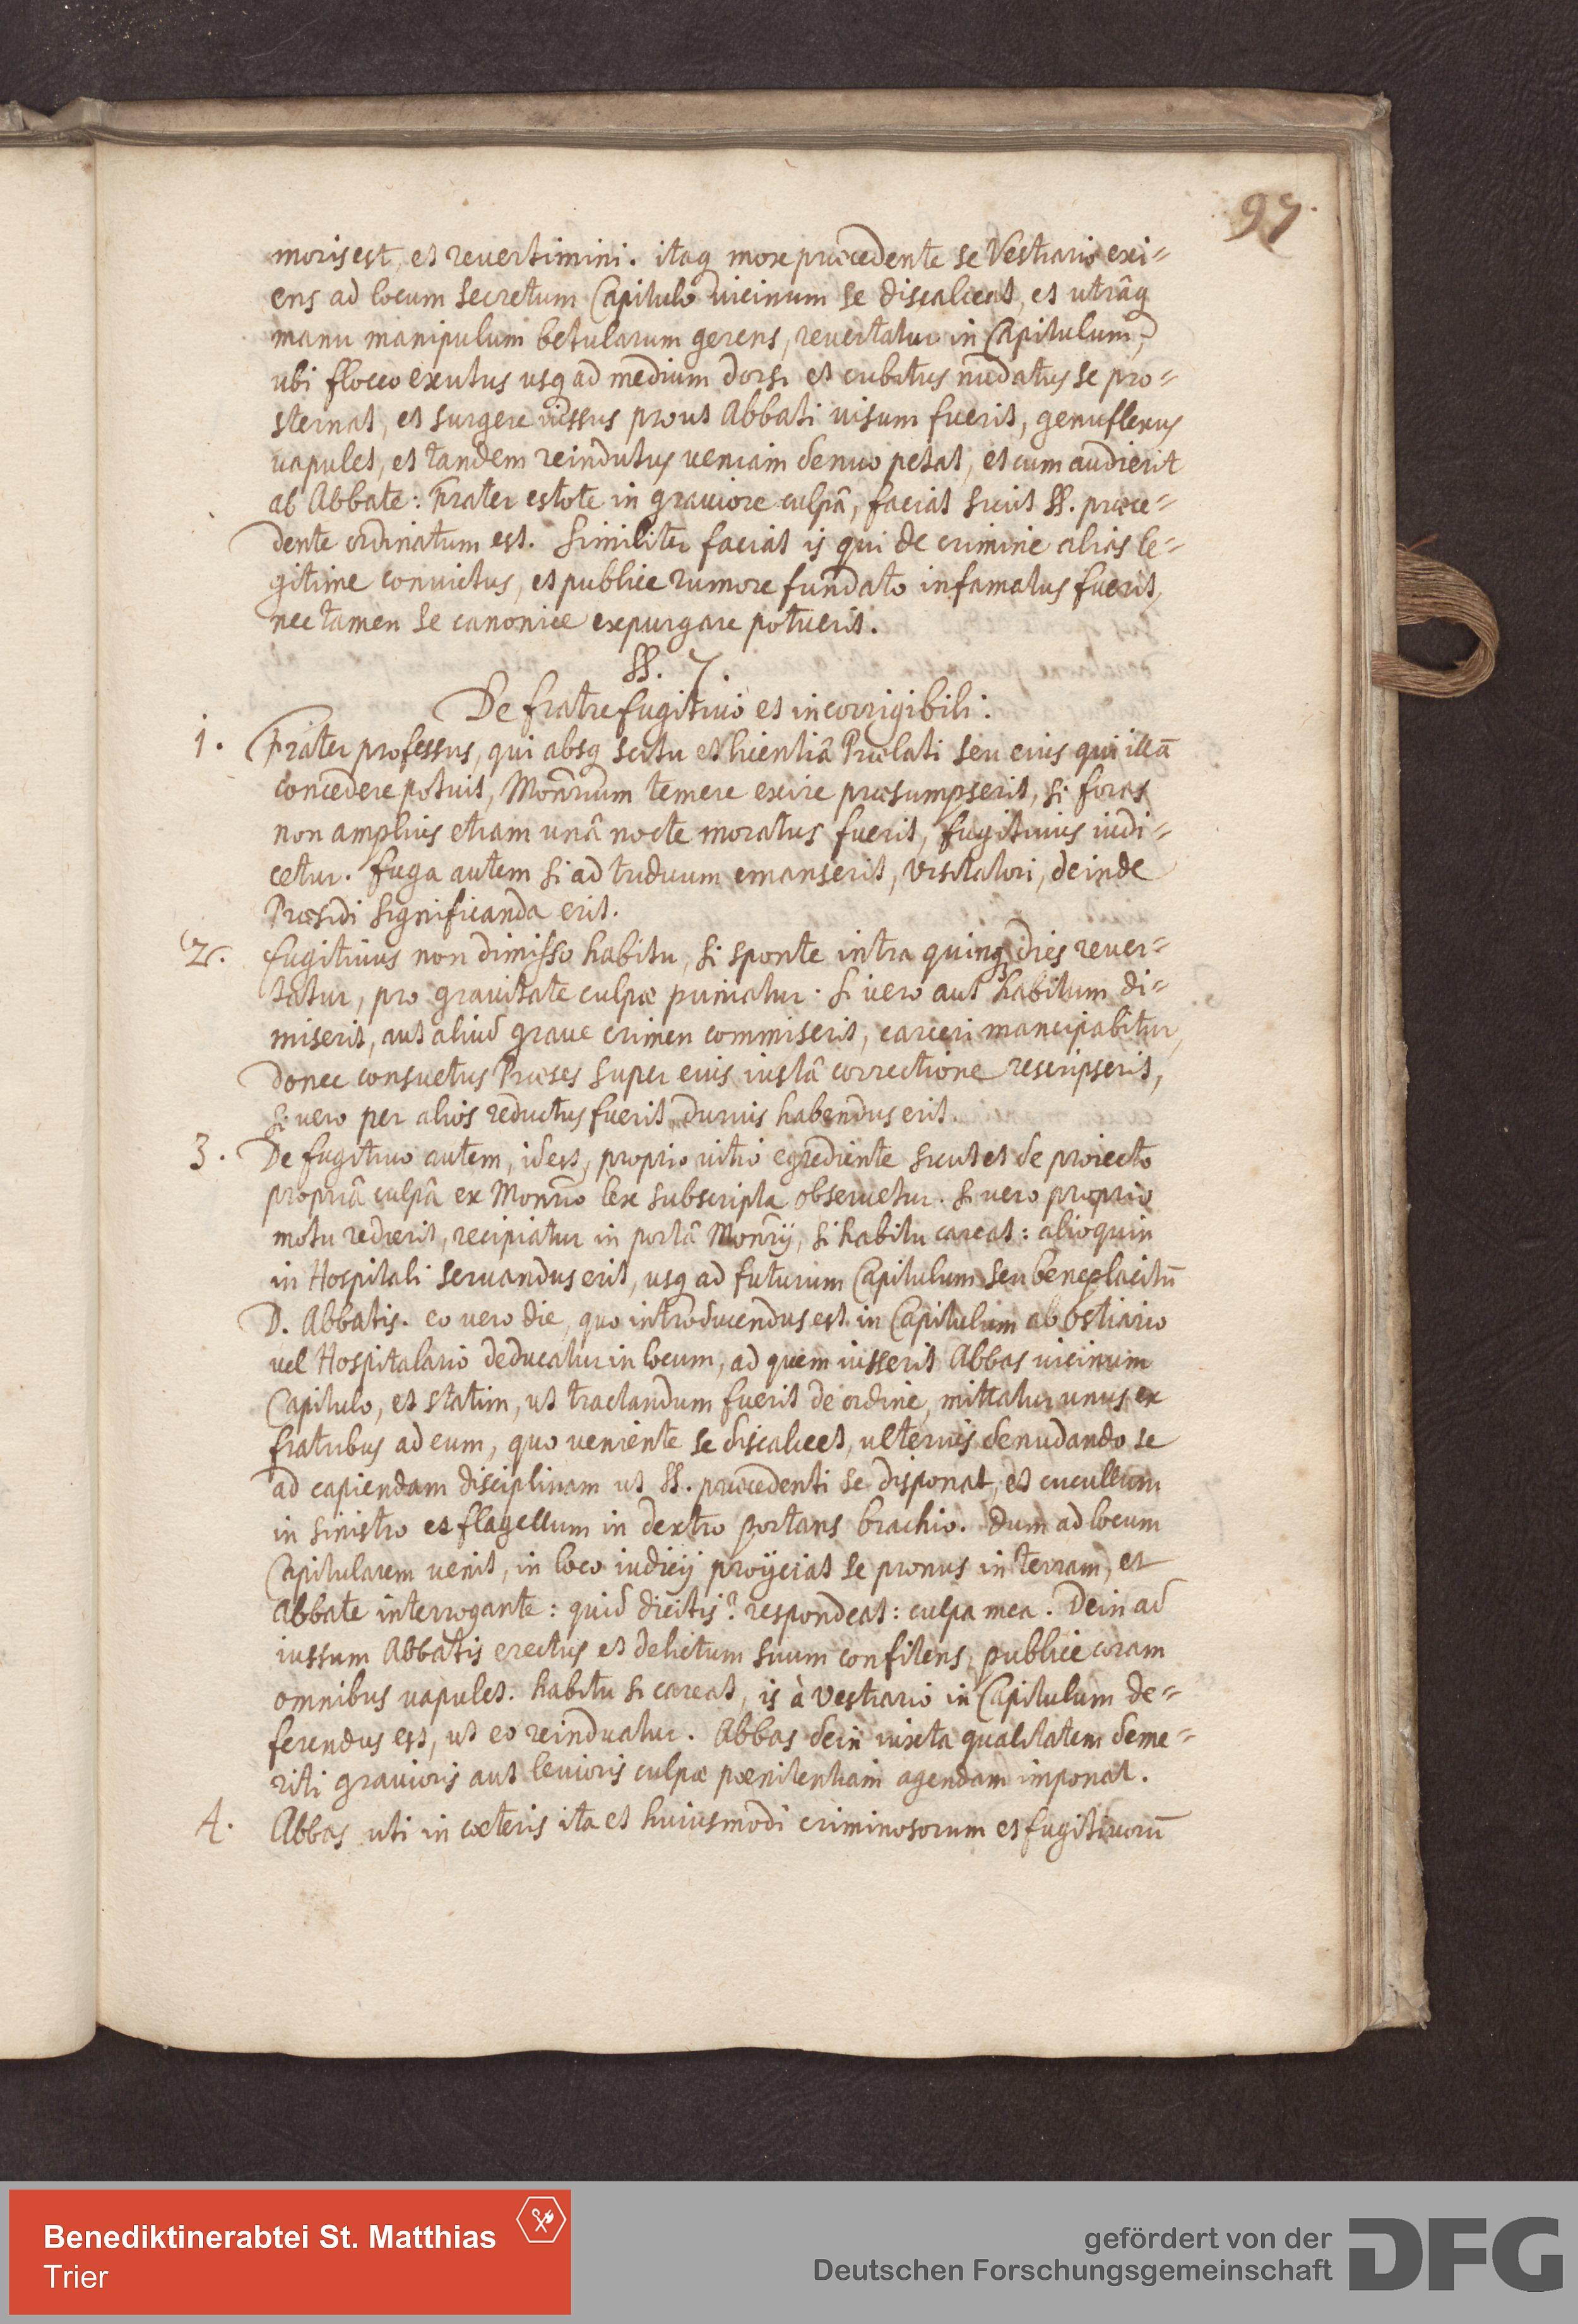 97.
moris est, et revertimini. itaq more præcedente se Vestiario exi=
ens ad locum secretum Capitulo vicinum se discalceat, et utrâq
manu manipulum betularum gerens, revertatur in Capitulum,
ubi flocco exutus usq ad medium dorsi et cubitus nudatus se pro=
sternat, et surgere iussus prout Abbati visum fuerit, genuflexus
vapulet, et tandem reindutus veniam denuo petat, et cum audierit
ab Abbate: Frater estote in graviore culpâ, faciat sicut §§. præce=
dente ordinatum est. Similiter faciat is qui de crimine alias le=
gitime convictus, et publice rumore fundato infamatus fuerit,
nec tamen se canonice expurgare potuerit.
§§. 7.
De fratre fugitivo et incorrigibili.
1. Frater professus, qui absq scitu et licentiâ Prælati seu eius qui illā
concedere potuit, Monrium temere exire præsumpserit, si foras
non amplius etiam unâ nocte moratus fuerit, fugitivus iudi=
cetur. fuga autem si ad triduum emanserit, Visitatori, deinde
Præsidi significanda erit.
2. fugitivus non dimisso habitu, si sponte intra quinq dies rever=
tatur, pro gravitate culpæ puniatur. Si vero aut habitum di=
miserit, aut aliud grave crimen commiserit, carceri mancipabitur,
donec consuetus Præses super eius iustâ correctione rescripserit,
si vero per alios reductus fuerit, durius habendus erit.
3. De fugitivo autem, id est, proprio vitio egrediente sicut et de proiecto
propriâ culpâ ex Monrio lex subscripta observetur. Si vero proprio
motu redierit, recipiatur in portâ Monrij, si habitu careat: alioquin
in Hospitali servandus erit, usq ad futurum Capitulum seu beneplacitū
D. Abbatis. eo vero die, quo introducendus est in Capitulum ab Ostiario
vel Hospitalario deducatur in locum, ad quem iusserit Abbas vicinum
Capitulo, et statim, ut tractandum fuerit de ordine, mittatur unus ex
fratribus ad eum, quo veniente se discalceet, ulterius denudando se
ad capiendam disciplinam ut §§. præcedenti se disponat, et cucullum
in sinistro et flagellum in dextro portans brachio. Dum ad locum
Capitularem venit, in loco iudicij proijciat se pronus in terram, et
Abbate interrogante: quid dicitis? respondeat: culpa mea. Dein ad
iussum Abbatis erectus et delictum suum confitens, publice coram
omnibus vapulet. habitu si careat, is à Vestiario in Capitulum de=
ferendus est, ut eo reinduatur. Abbas dein iuxta qualitatem deme=
riti gravioris aut levioris culpæ pœnitentiam agendam imponat.
4. Abbas uti in cæteris ita et huiusmodi criminosorum et fugitivorū
Benediktinerabtei St. Matthias
Trier
gefördert von der
Deutschen Forschungsgemeinschaft
DFG